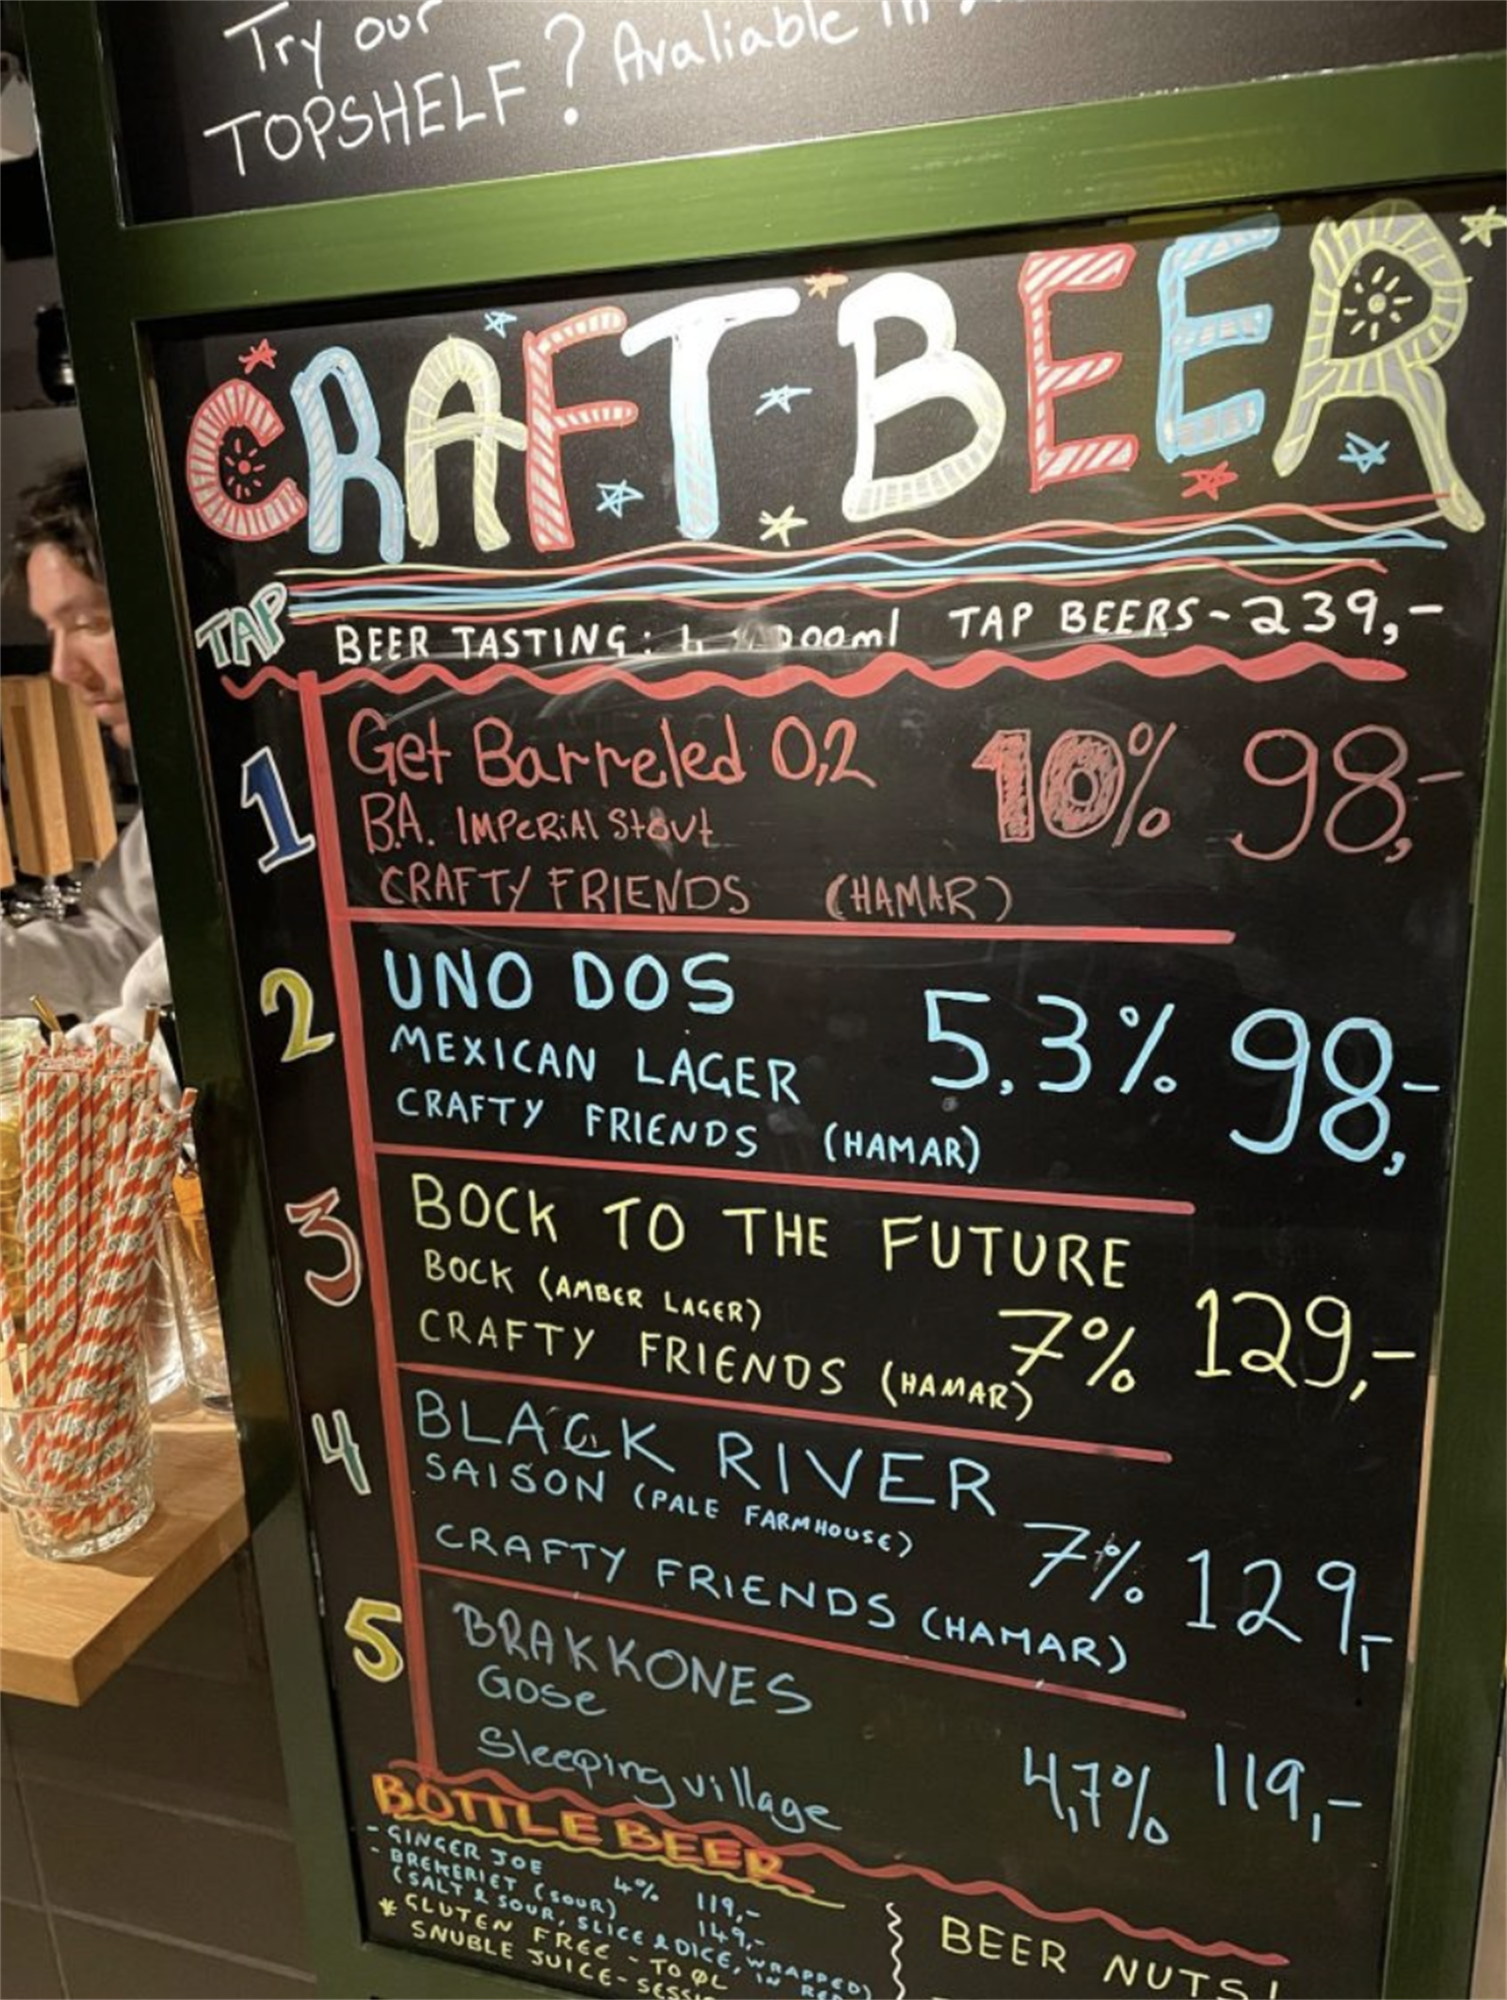 Try our
TOPSHELF? Avaliable in
CRAFT BEER
TAP
BEER TASTING: 4 x 200ml TAP BEERS - 239,-
1
Get Barreled 0,2 10% 98,-
B.A. IMPERIAL Stout
CRAFTY FRIENDS (HAMAR)
2
UNO DOS
MEXICAN LAGER 5,3% 98,-
CRAFTY FRIENDS (HAMAR)
3
BOCK TO THE FUTURE
BOCK (AMBER LAGER) 7% 129,-
CRAFTY FRIENDS (HAMAR)
4
BLACK RIVER
SAISON (PALE FARMHOUSE) 7% 129,-
CRAFTY FRIENDS (HAMAR)
5
BRAKKONES
Gose
Sleeping village 4,7% 119,-
BOTTLE BEER
- GINGER JOE 4% 119,-
- BREKERIET (SOUR) 149,-
(SALT & SOUR, SLICE & DICE, WRAPPED IN RED)
* GLUTEN FREE - TO ØL
SNUBLE JUICE - SESSI
BEER NUTS!